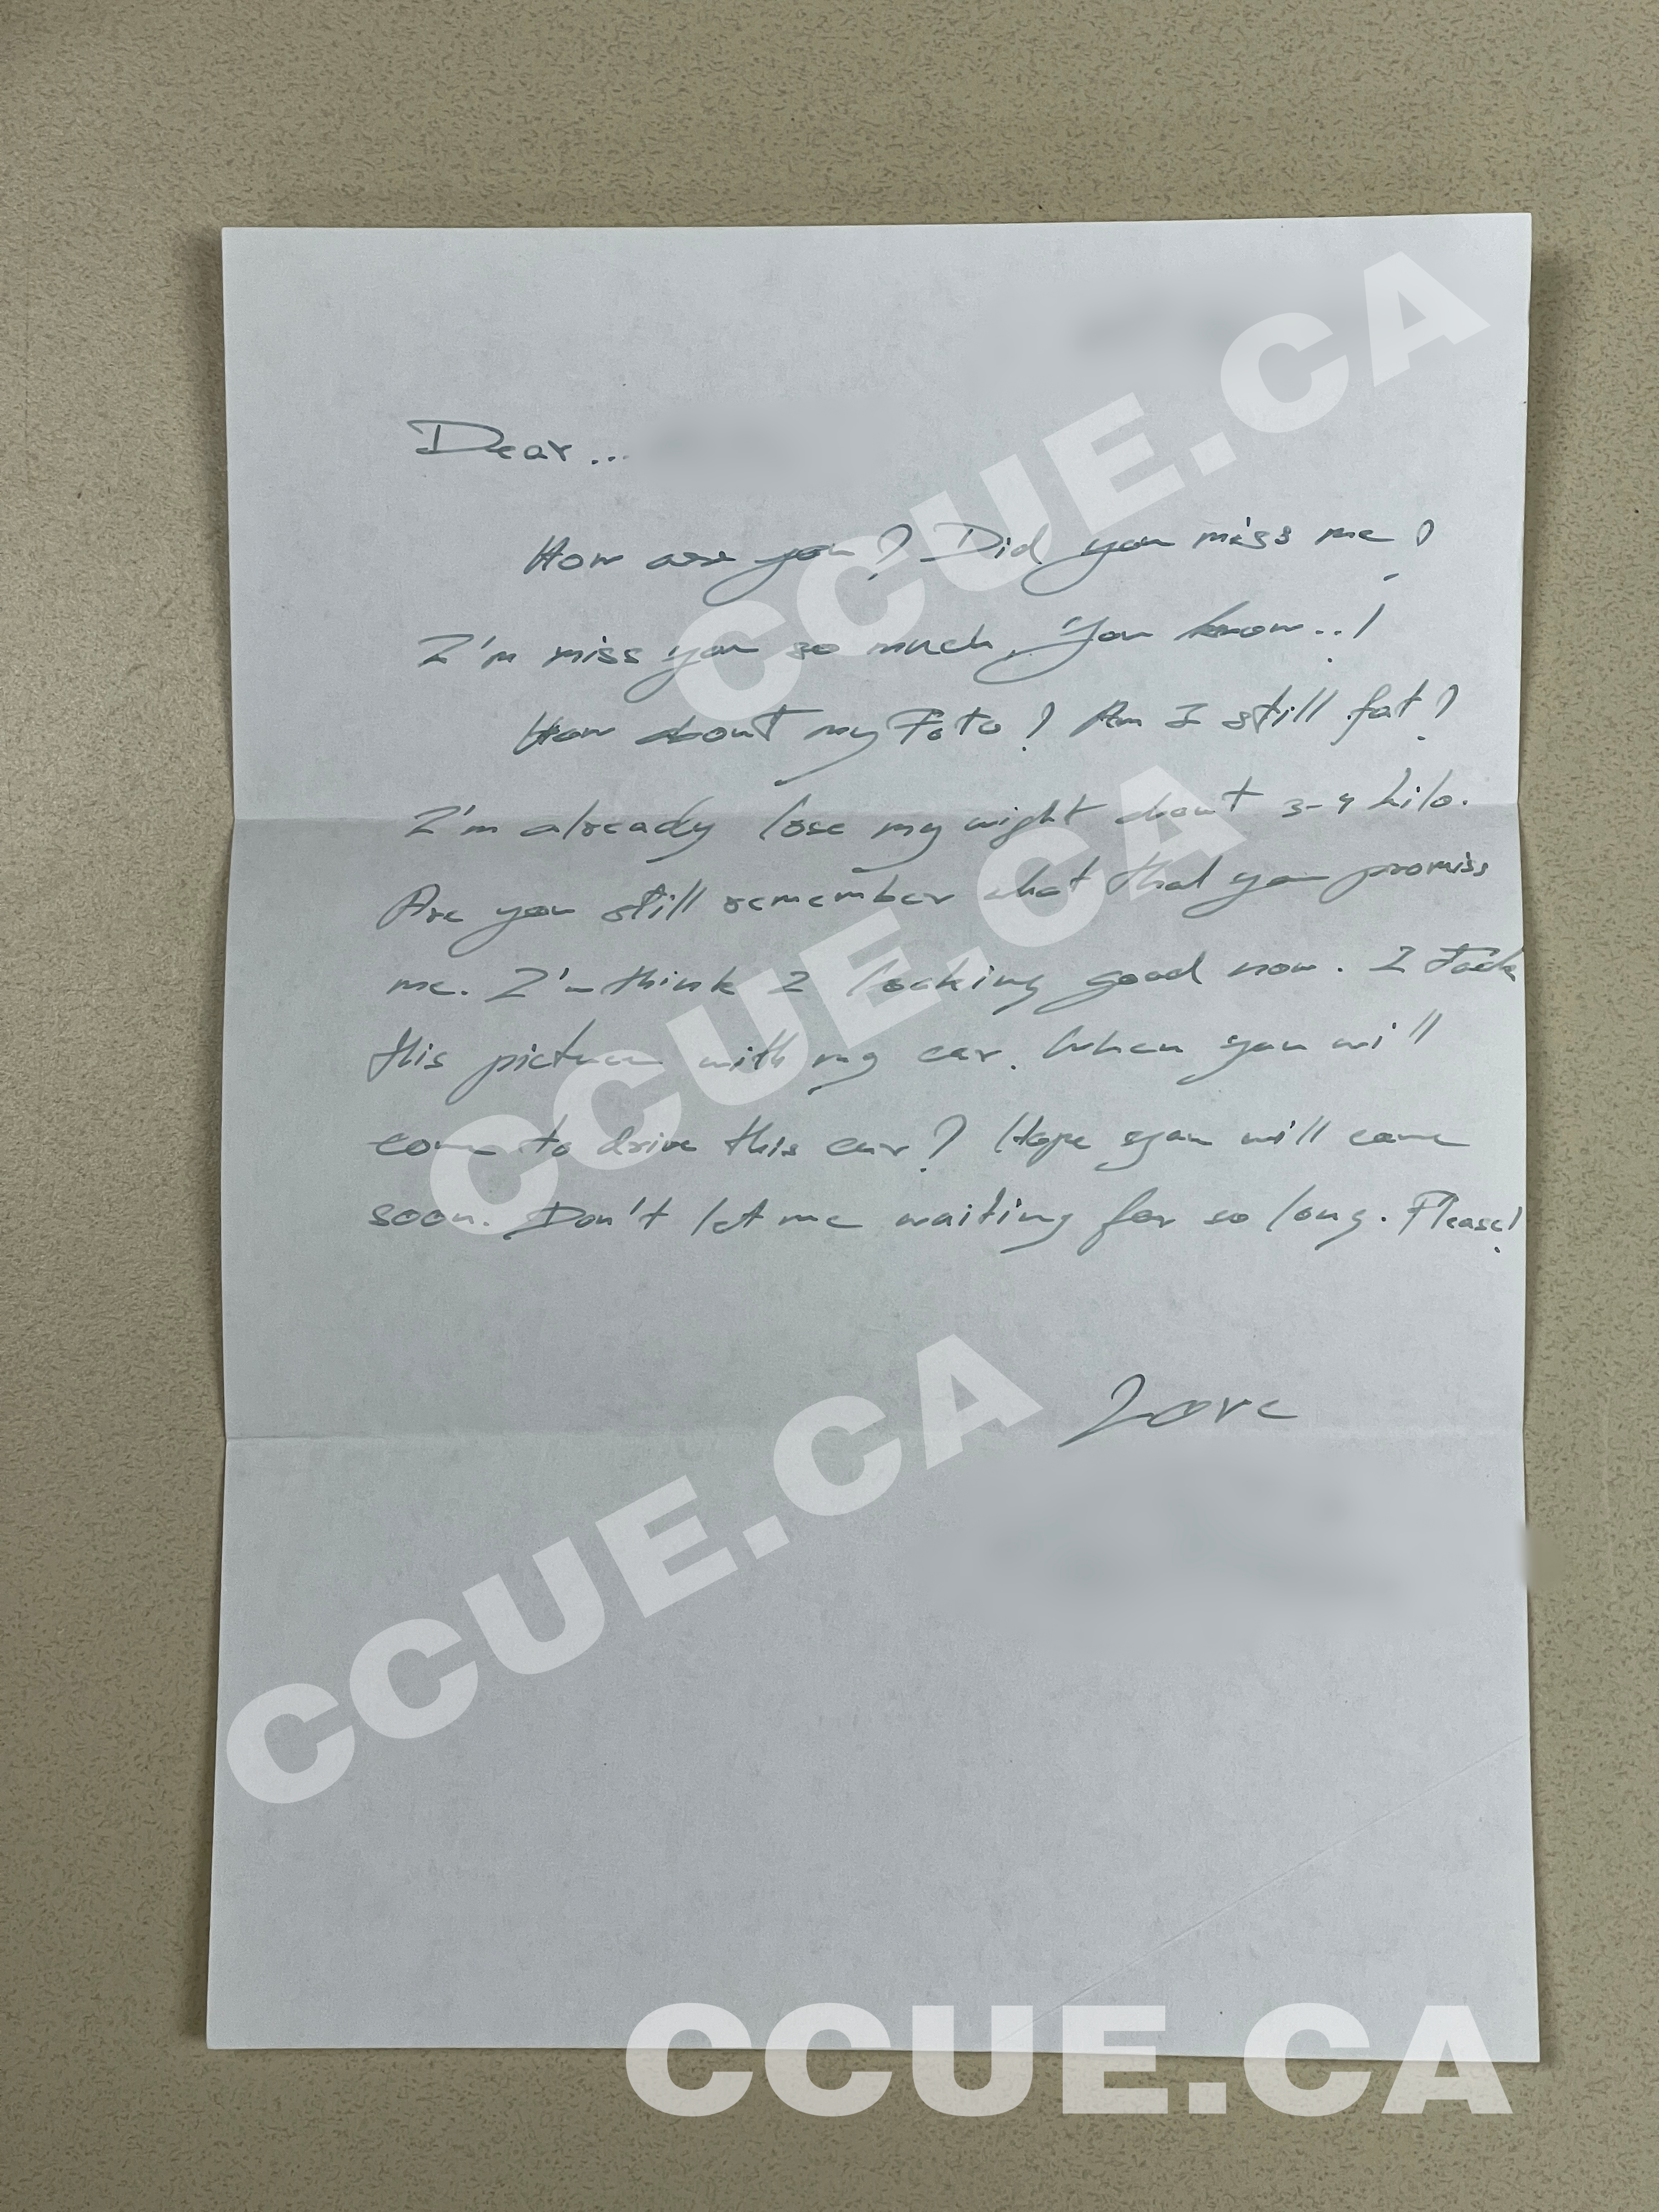 Dear...
How are you? Did you miss me?
I'm miss you so much, You know..!
How about my Foto? Am I still fat?
I'm already lose my wight about 3-4 kilo.
Are you still remember what that you promiss
me. I'm think I looking good now. I Tack
this picture with my car. When you will
come to drive this car? Hope you will come
soon. Don't let me waiting for so long. Please!
Love
CCUE.CA
CCUE.CA
CCUE.CA
CCUE.CA